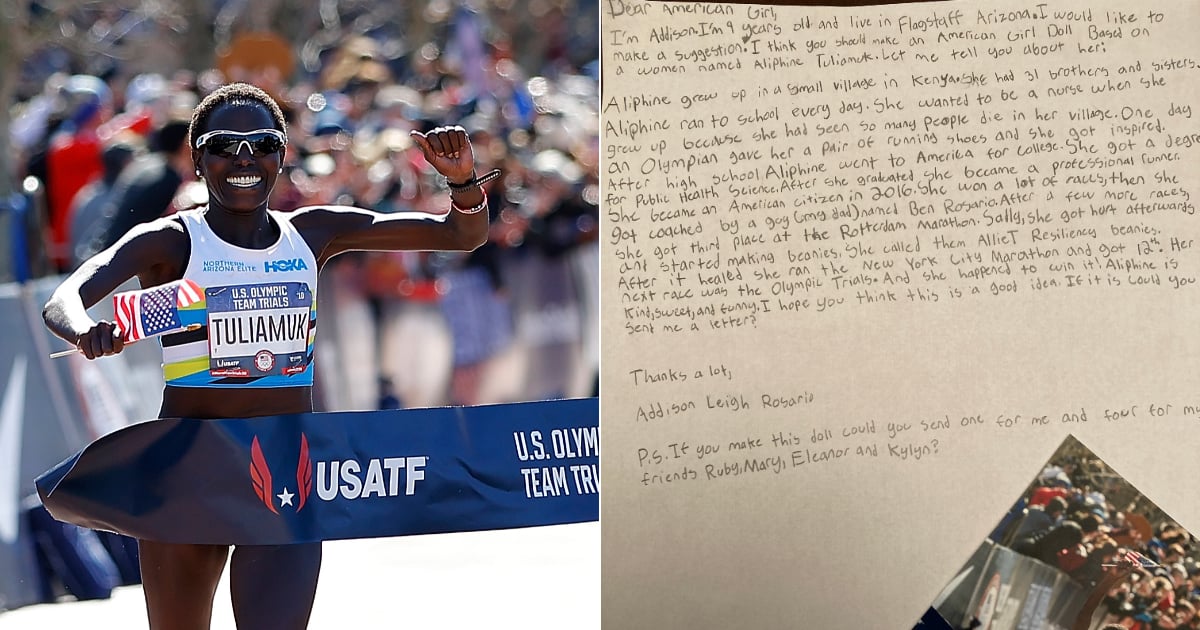 NORTHERN
ARIZONA ELITE HOKA
U.S. OLYMPIC
TEAM TRIALS
TULIAMUK
USATF
USATF
U.S. OLYM
TEAM TRI
Dear American Girl,
I'm Addison. I'm 9 years old and live in Flagstaff Arizona. I would like to
make a suggestion. I think you should make an American Girl Doll Based on
a women named Aliphine Tuliamuk. Let me tell you about her:
Aliphine grew up in a small village in Kenya. She had 31 brothers and sisters.
Aliphine ran to school every day. She wanted to be a nurse when she
grew up because she had seen so many people die in her village. One day
an Olympian gave her a pair of running shoes and she got inspired.
After high school Aliphine went to America for college. She got a degre
for Public Health Science. After she graduated she became a professional runner.
She became an American citizen in 2016. She won a lot of races, then she
got coached by a guy (my dad) named Ben Rosario. After a few more races,
she got third place at the Rotterdam Marathon. Sadly, she got hurt afterwards
and started making beanies. She called them AllieT Resiliency beanies.
After it healed she ran the New York City Marathon and got 12th. Her
next race was the Olympic Trials. And she happened to win it! Aliphine is
kind, sweet, and funny. I hope you think this is a good idea. If it is could you
send me a letter?
Thanks a lot,
Addison Leigh Rosario
P.s. If you make this doll could you send one for me and four for my
friends Ruby, Mary, Eleanor and Kylyn?